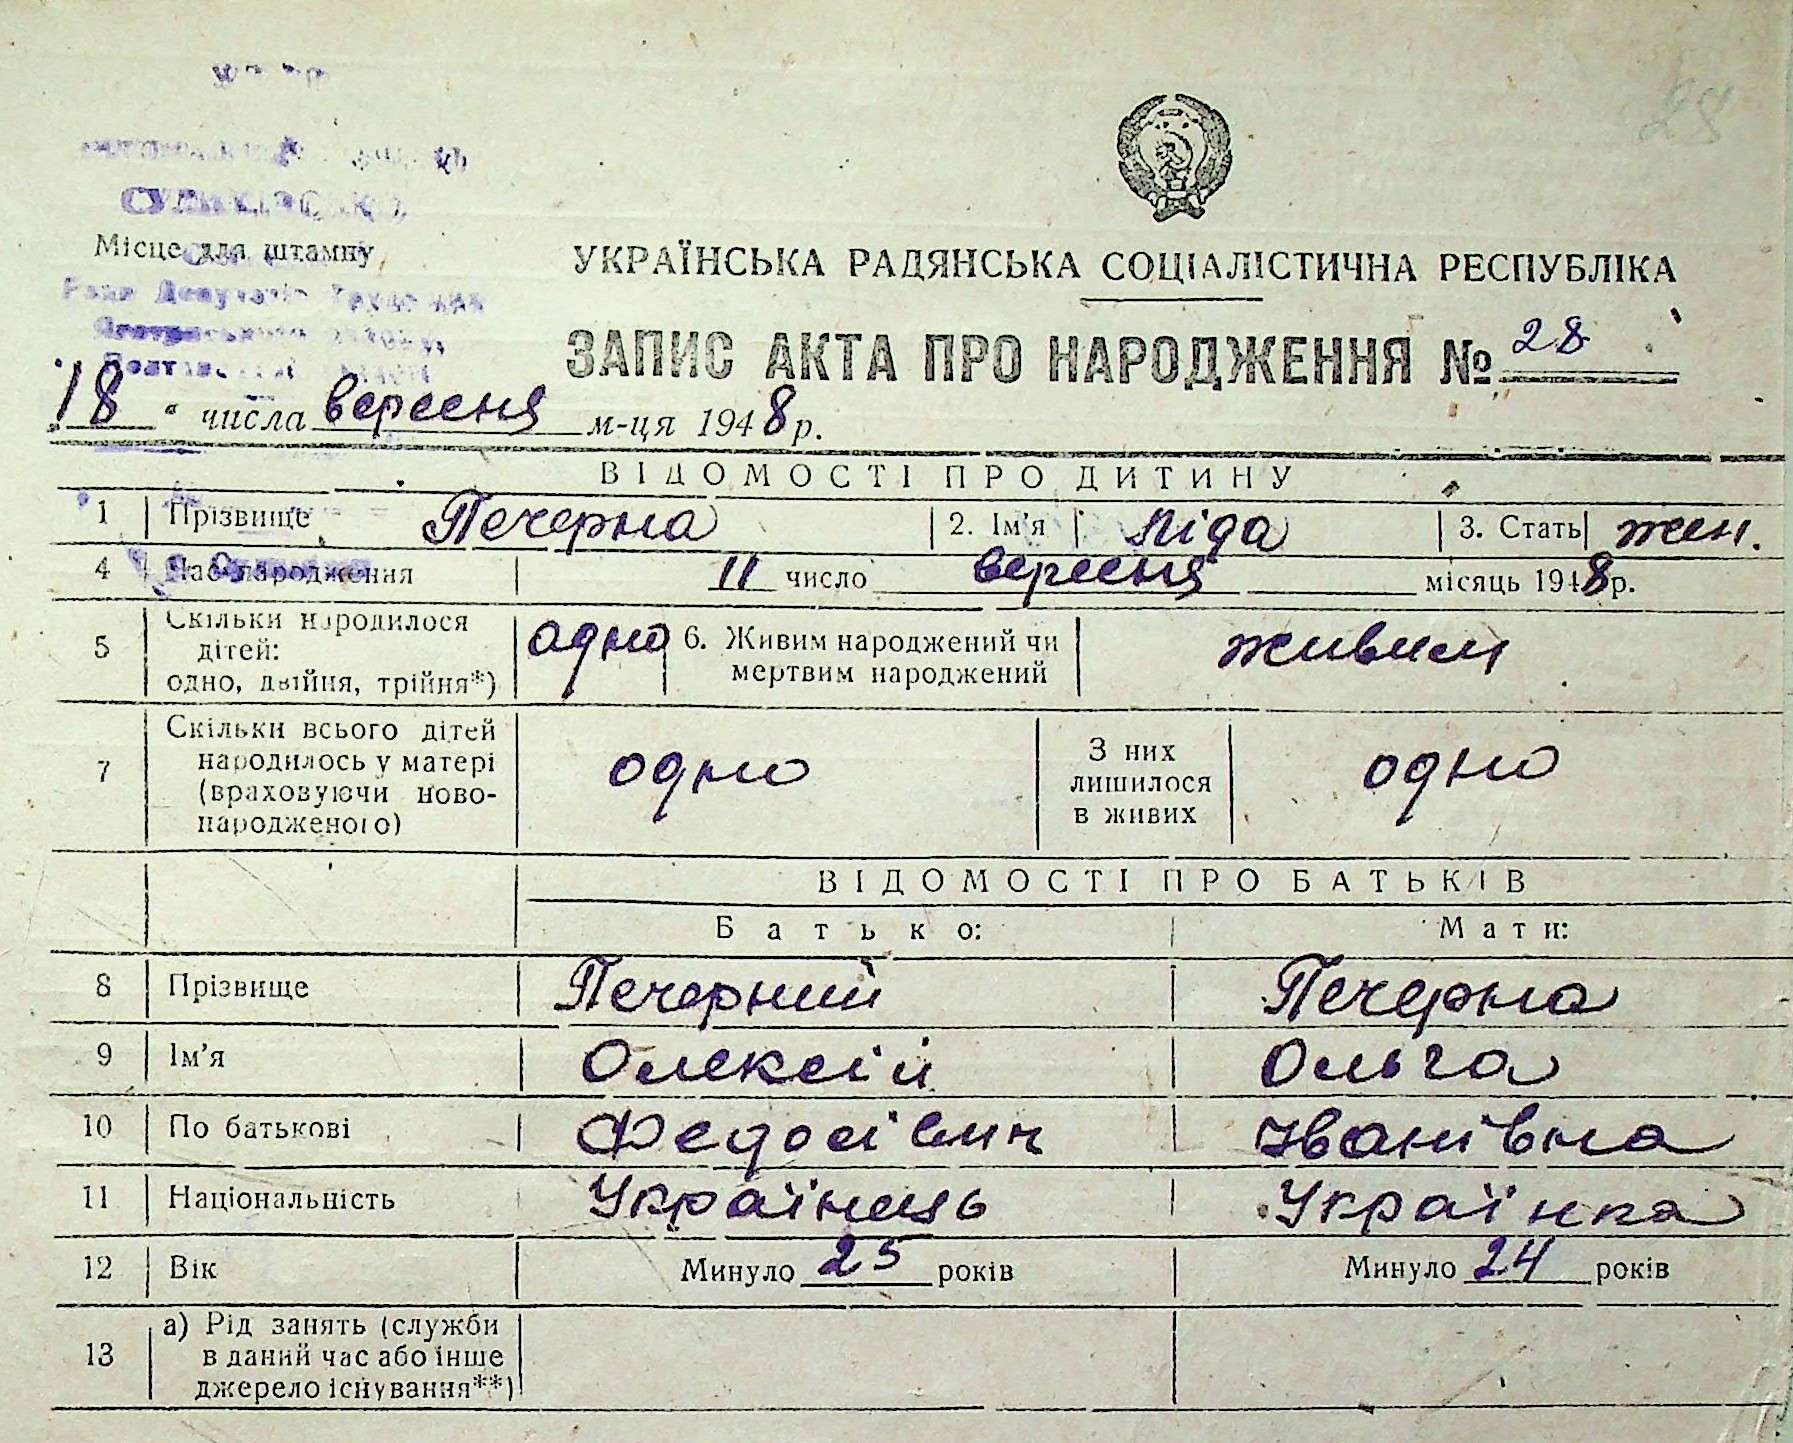 28
Місце для штампу
Ради Депутатів Трудящих
УКРАЇНСЬКА РАДЯНСЬКА СОЦІАЛІСТИЧНА РЕСПУБЛІКА
ЗАПИС АКТА ПРО НАРОДЖЕННЯ № 28
18 числа вересня м-ця 1948 р.
ВІДОМОСТІ ПРО ДИТИНУ
1 Прізвище Печерна 2. Ім'я Ліда 3. Стать жен.
4 Час народження 11 число вересня місяць 1948 р.
5 Скільки народилося дітей: одно, двійня, трійня*) одно 6. Живим народжений чи мертвим народжений живим
7 Скільки всього дітей народилось у матері (враховуючи ново-народженого) одно З них лишилося в живих одно
ВІДОМОСТІ ПРО БАТЬКІВ
Батько: Мати:
8 Прізвище Печерний Печерна
9 Ім'я Олексій Ольга
10 По батькові Федосівич Іванівна
11 Національність Українець Українка
12 Вік Минуло 25 років Минуло 24 років
13 а) Рід занять (служби в даний час або інше джерело існування**)